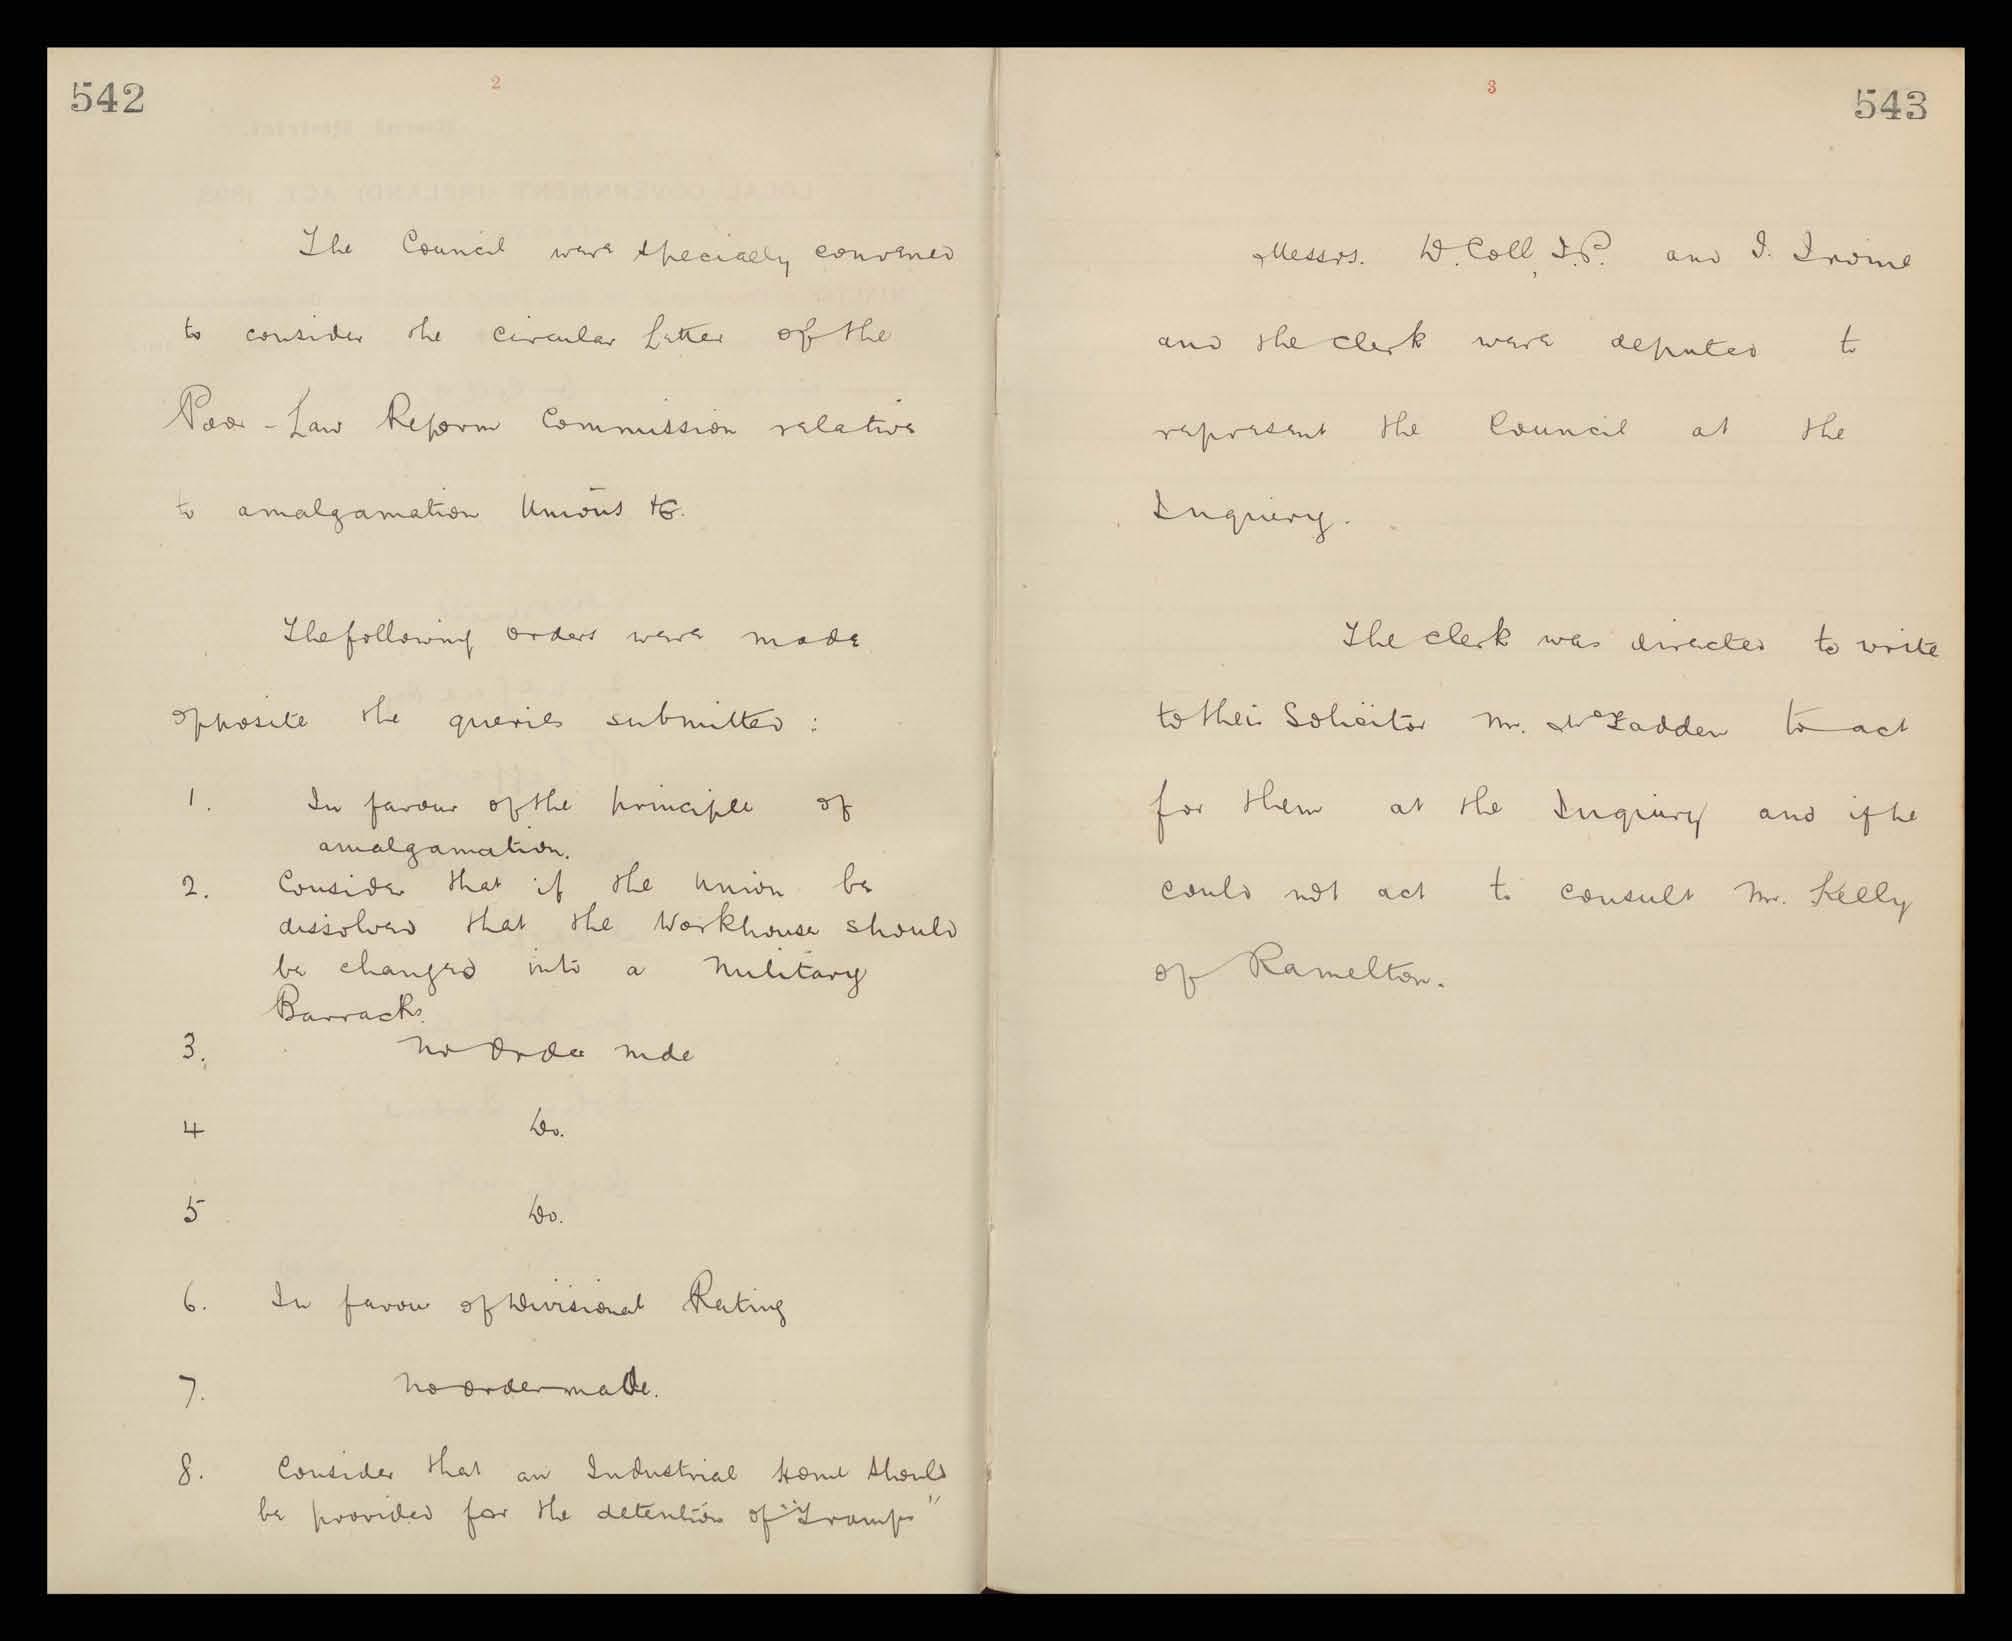 542
2
The Council were specially convened
to consider the circular letter of the
Poor-Law Reform Commission relative
to amalgamation Unions &c.
The following orders were made
opposite the queries submitted :
1. In favour of the principle of
amalgamation.
2. Consider that if the Union be
dissolved that the Workhouse should
be changed into a Military
Barracks.
3. No Order mde
4 Do.
5 Do.
6. In favour of Divisional Rating
7. No order made.
8. Consider that an Industrial Home should
be provided for the detention of "Tramps"
3
543
Messrs. D. Coll, J.P. and J. Irvine
and the clerk were deputed to
represent the Council at the
Inquiry.
The clerk was directed to write
to their Solicitor Mr. McFadden to act
for them at the Inquiry and if he
could not act to consult Mr. Kelly
of Ramelton.